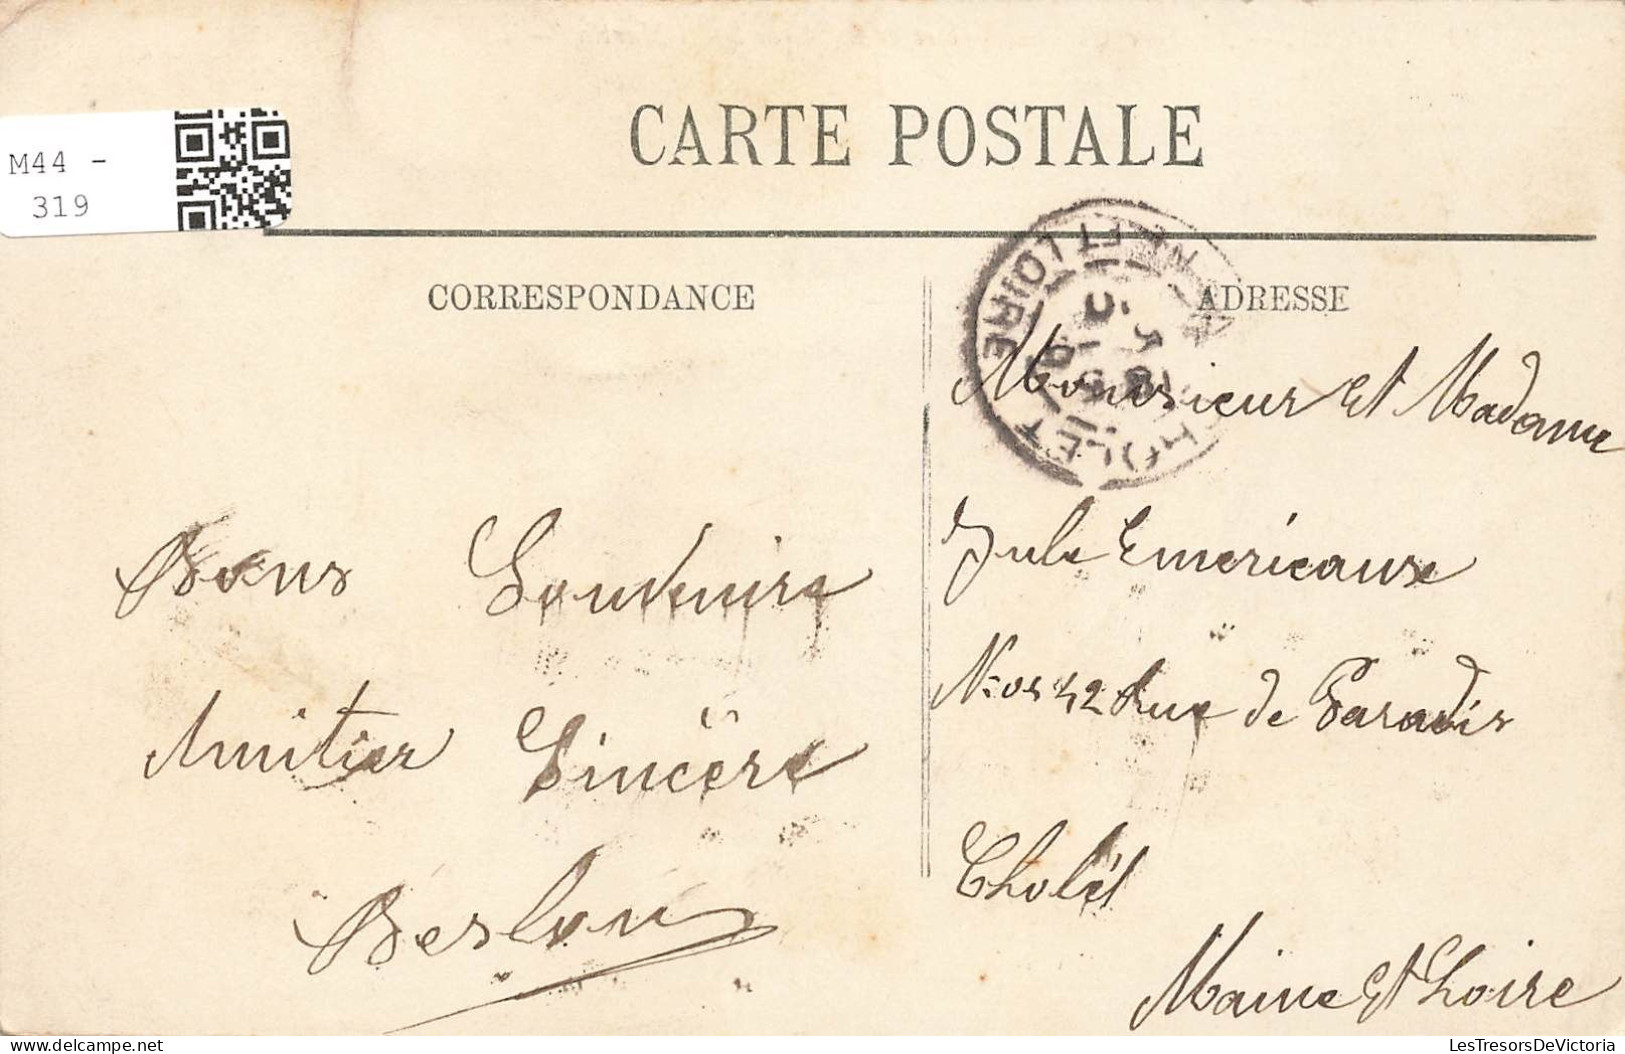 CARTE POSTALE
M44 -
319
CORRESPONDANCE
ADRESSE
CHOLET MAINE ET LOIRE
Monsieur Et Madame
Jule Emericaux
42 Rue de Paradis
Cholét
Maine Et Loire
Bons Souvenirs
Amitier Sincère
Beslon
delcampe.net
LesTresorsDeVictoria